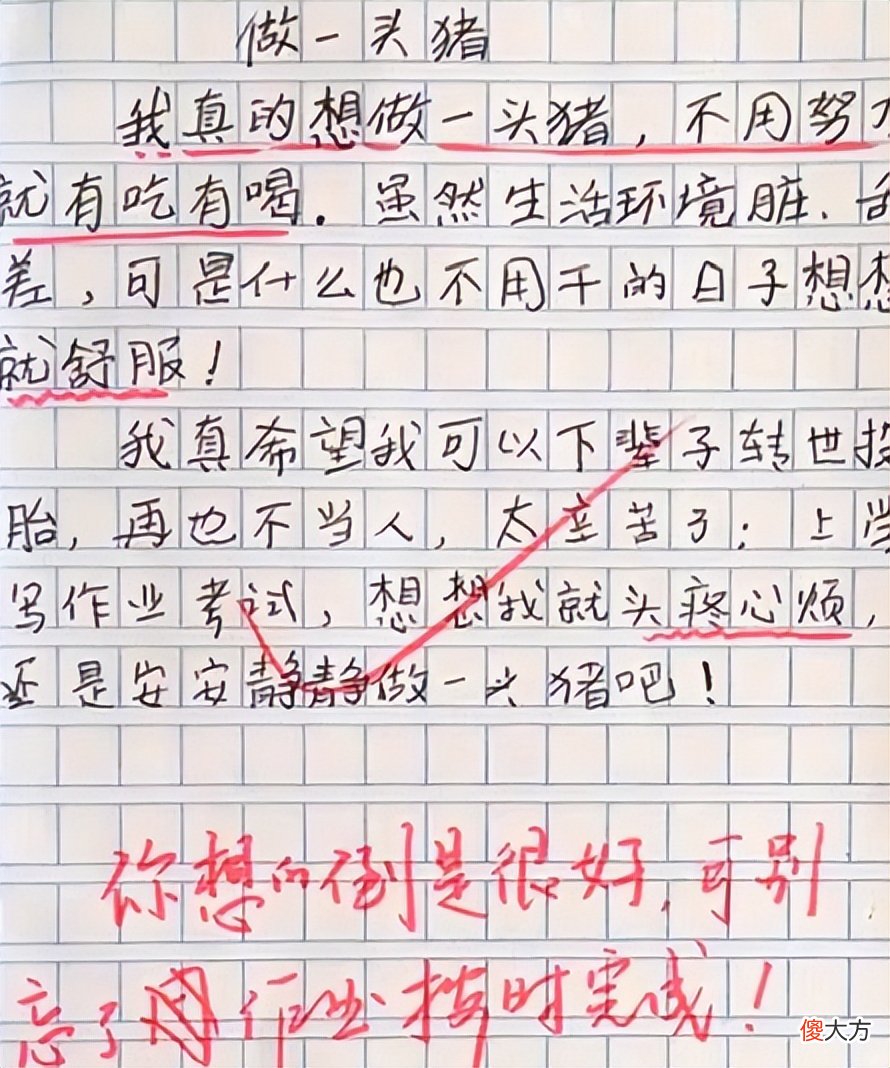 做一头猪
我真的想做一头猪，不用努力
就有吃有喝．虽然生活环境脏、
差，可是什么也不用干的日子想想
就舒服！
我真希望我可以下辈子转世投
胎，再也不当人，太辛苦了：上学
写作业考试，想想我就头疼心烦，
还是安安静静做一头猪吧！
你想的倒是很好，可别
忘了作业按时完成！
傻大方